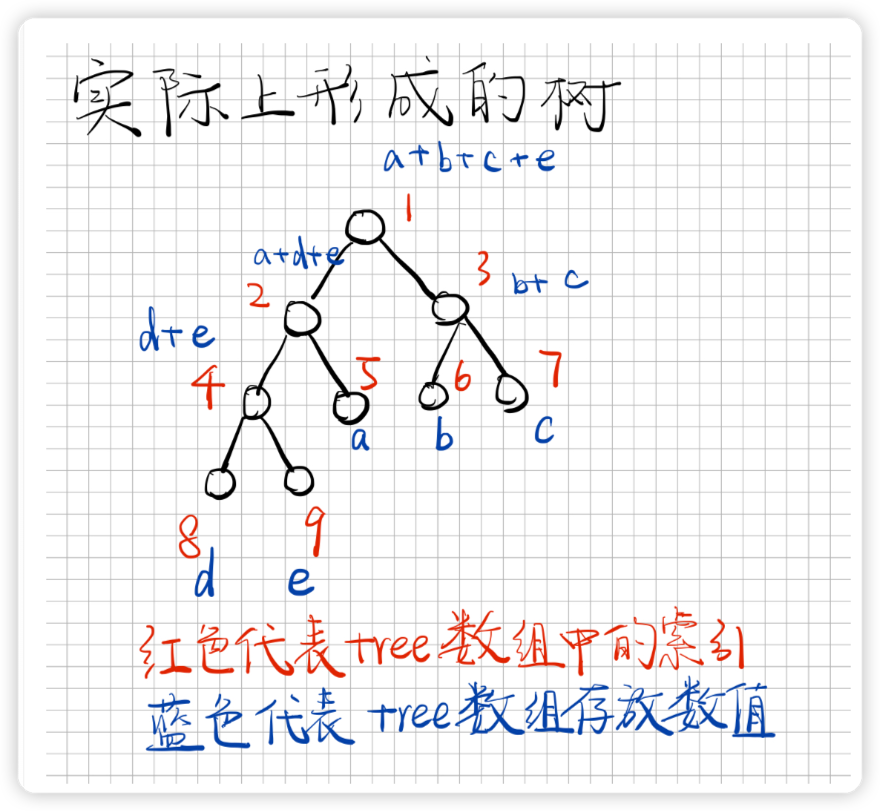 实际上形成的树
a+b+c+e
1
a+d+e
3
b+c
2
d+e
4
5
6
7
a
b
c
8
9
d
e
红色代表tree数组中的索引
蓝色代表tree数组存放数值